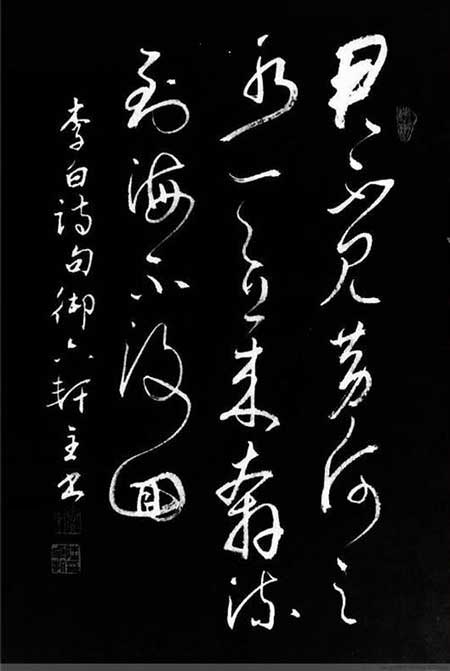 君不見黄河之
水天上来奔流
到海不復回
李白詩句御六軒主书